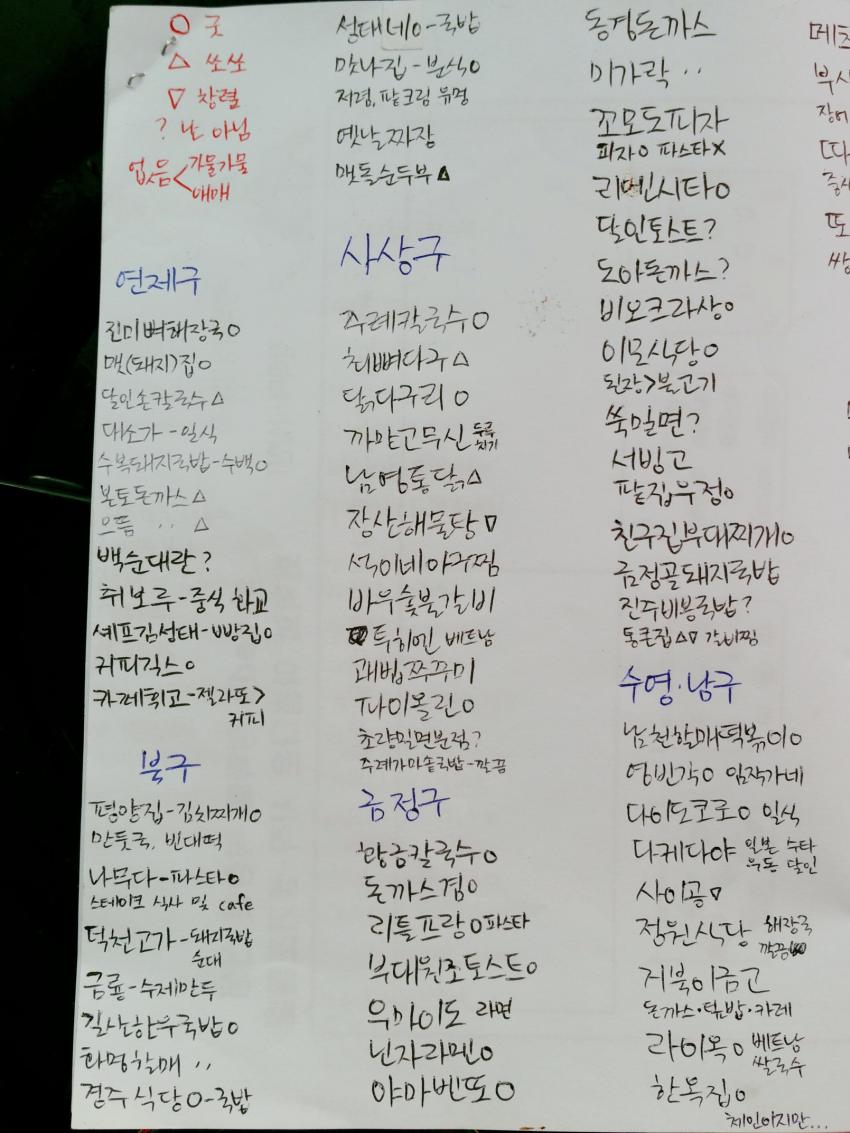 ○ 굿
△ 쏘쏘
▽ 창렬
? 난 아님
없음 < 가물가물
애매
연제구
진미뼈해장국○
맷(돼지)집○
달인손칼국수△
대소가-일식
수복돼지국밥-수백○
본토돈까스△
으뜸 〃 △
백순대란?
취보루-중식 화교
셰프김성태-빵집○
커피긱스○
카페휘고-젤라또>
커피
북구
평양집-김치찌개○
만둣국, 빈대떡
나무다-파스타○
스테이크 식사 및 cafe
덕천고가-돼지국밥
순대
금룡-수제만두
길산한우국밥○
화명할매 〃
경주식당○-국밥
설태네○-국밥
맛나집-분식○
저렴, 팥크림 유명
옛날짜장
맷돌순두부△
사상구
주례칼국수○
최뼈다구△
닭다구리○
까만고무신 두루
치기
남영통닭△
장산해물탕▽
석이네아구찜
바우숯불갈비
특히엔 베트남
괘법쭈꾸미
파이올린○
초량밀면분점?
주례가마솥국밥-깔끔
금정구
황금칼국수○
돈까스겸○
리틀프랑○파스타
부대원조토스트○
우마이도 라면
닌자라멘○
야마벤또○
동경돈까스
미가락 〃
꼬모도피자
피자○ 파스타×
리멘시타○
달인토스트?
도아돈까스?
비오크라상○
이모식당○
된장>불고기
쑥밀면?
서빙고
팥집우정○
친구집부대찌개○
금정골돼지국밥
진주비봉국밥?
통큰집△▽ 갈비찜
수영·남구
남천할매떡볶이○
영빈각○ 임작가네
다이도코로○ 일식
다케다야 일본 수타
우동 달인
사이공▽
정원식당 해장국
깔끔
거북이금고
돈까스·덮밥·카레
라이옥○ 베트남
쌀국수
한옥집○
체인이지만...